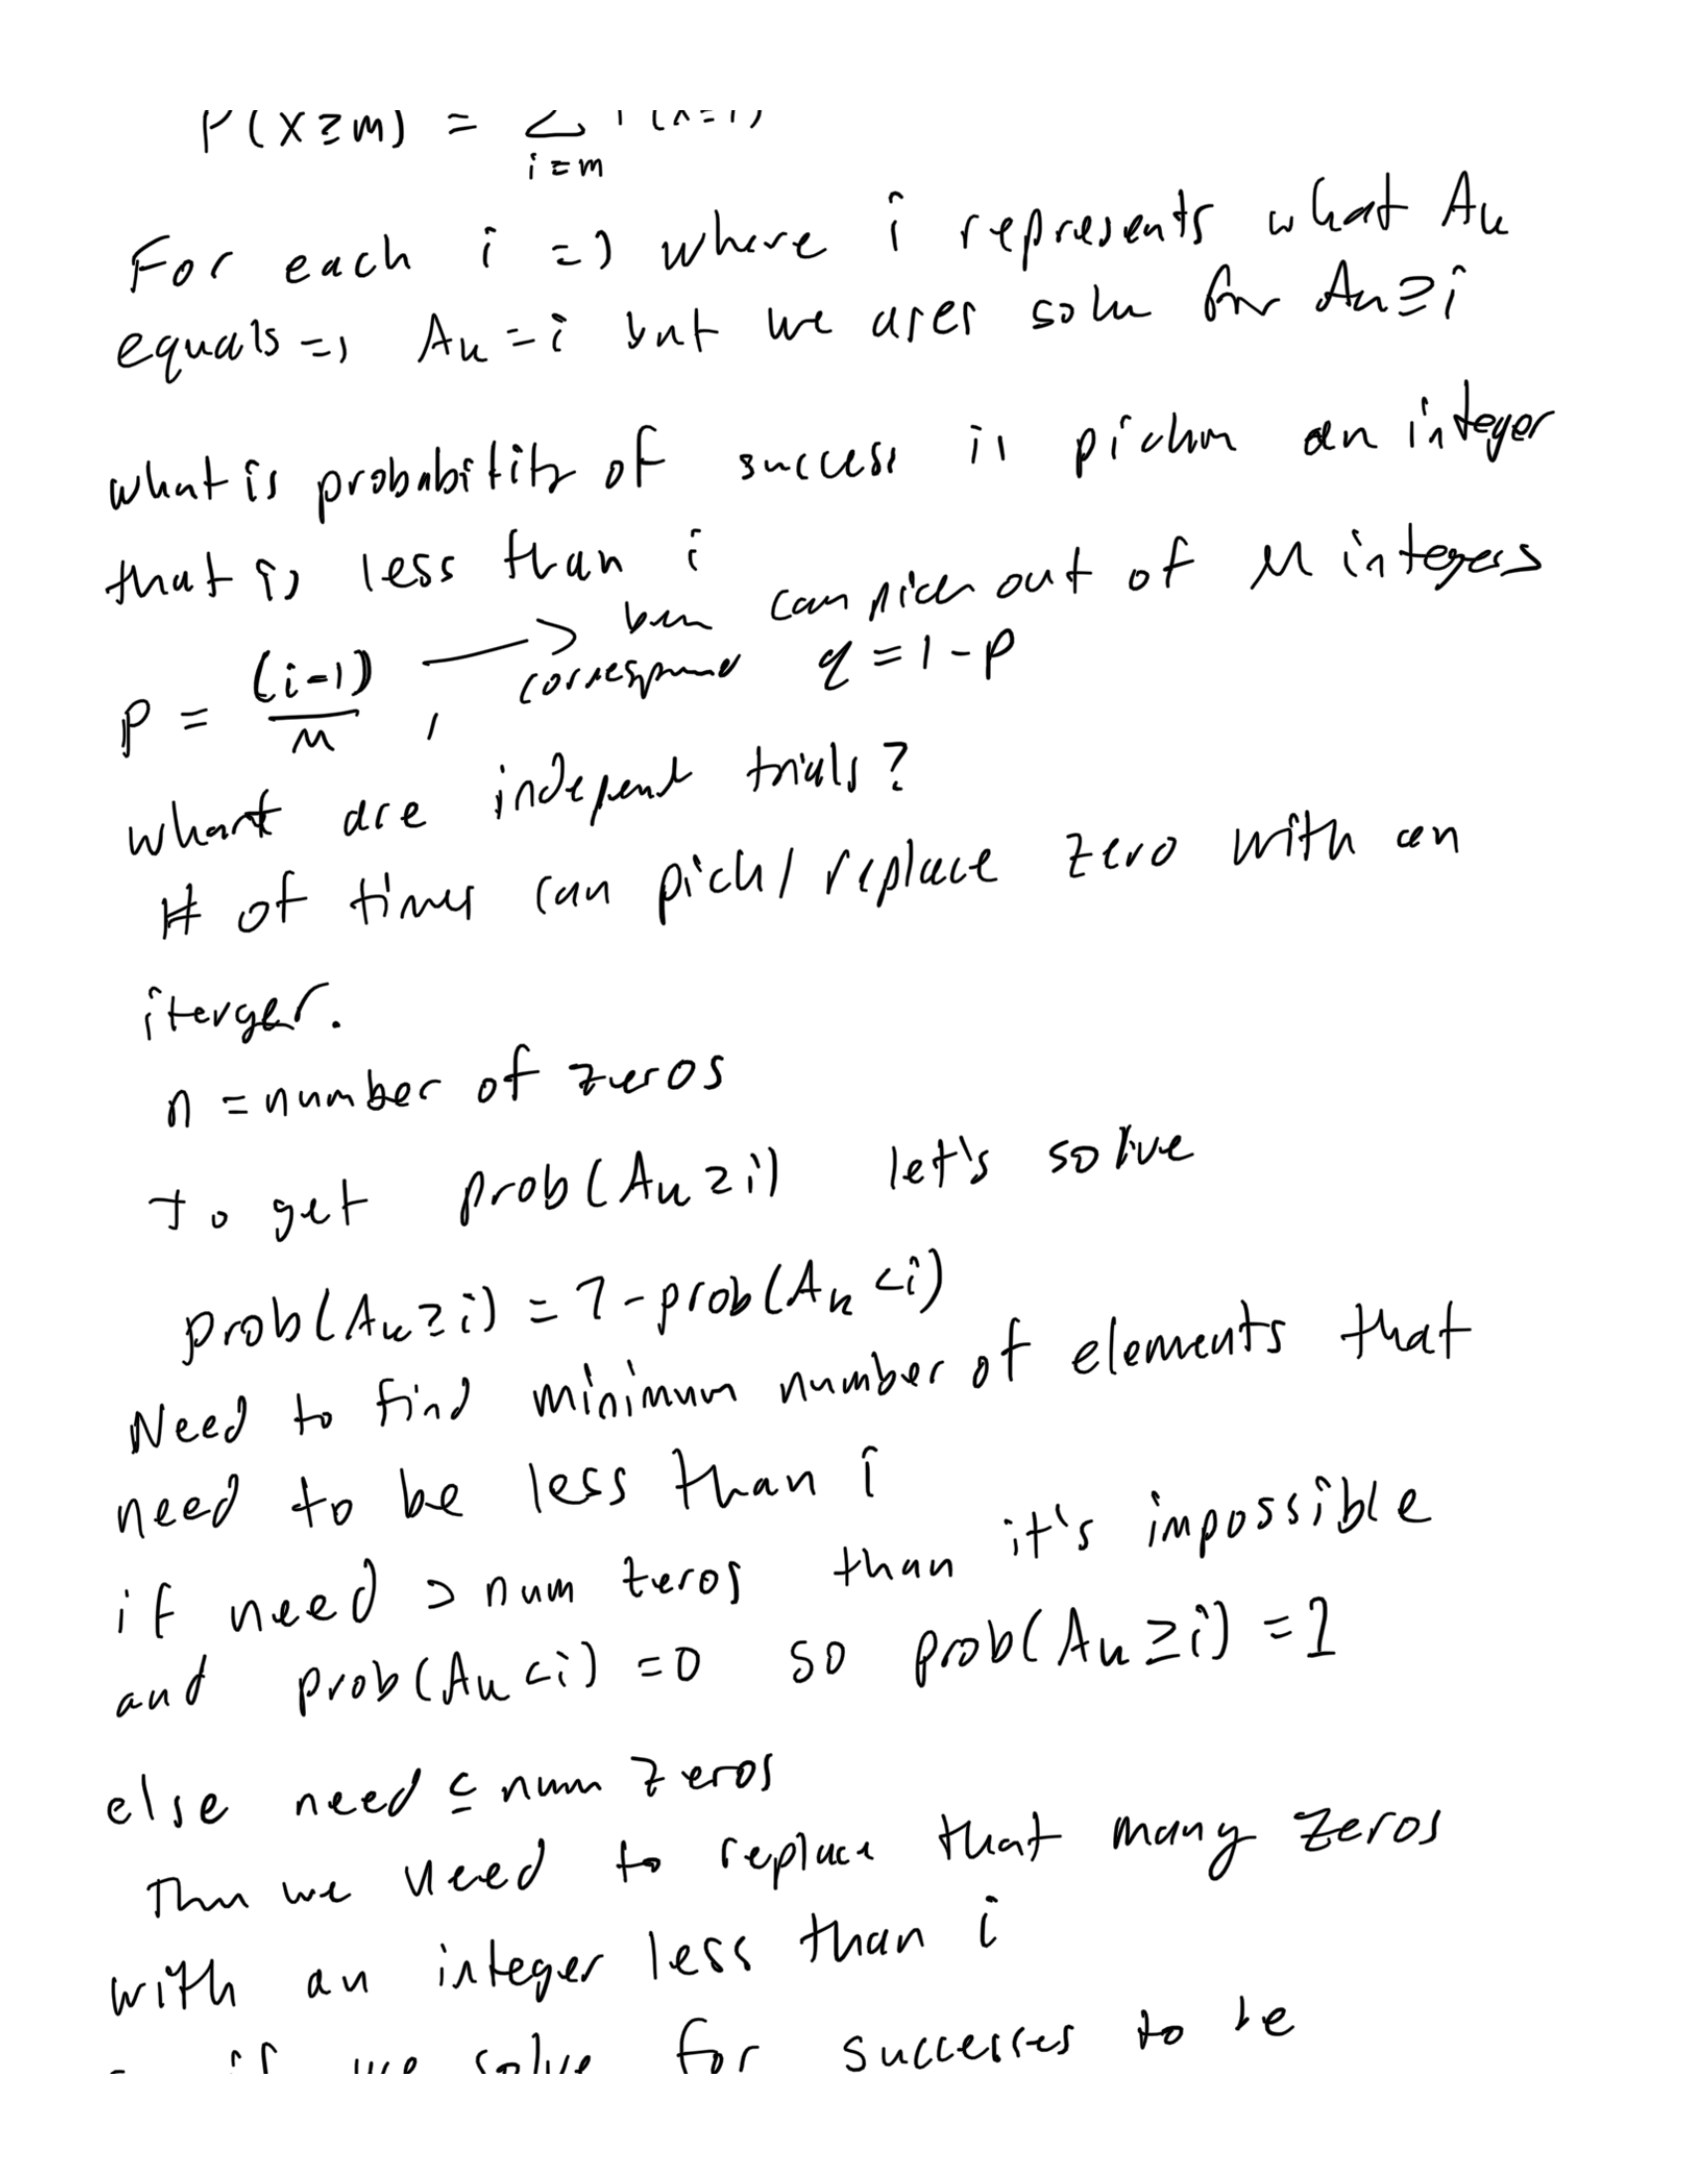 P(X≥m) = Σ i=m
For each i => where i represents what Ak
equals => Ak = i but we are solve for Ak≥i
what is probability of success is picking an integer
that is less than i
p = (i-1)/M , → can pick out of M integers
correspond q = 1-p
what are indepent trials?
# of times can pick/replace zero with an
iterger.
n = number of zeros
to get prob(Ak≥i) let's solve
prob(Ak≥i) = 1-prob(Ak<i)
Need to find minimum number of elements that
need to be less than i
if need > num zeros than it's impossible
and prob(Ak<i) =0 so prob(Ak≥i) =1
else need ≤ num zeros
Then we need to replace that many zeros
with an integer less than i
if we solve for successes to be